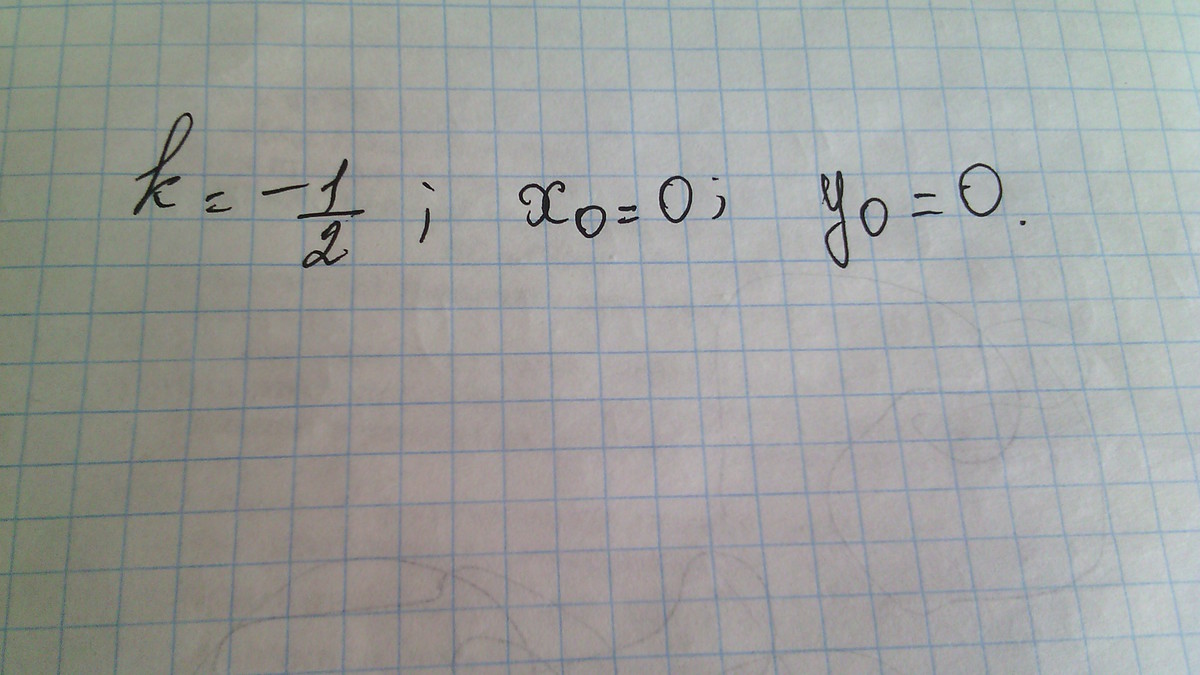 k = -1/2 ; x₀ = 0 ; y₀ = 0.